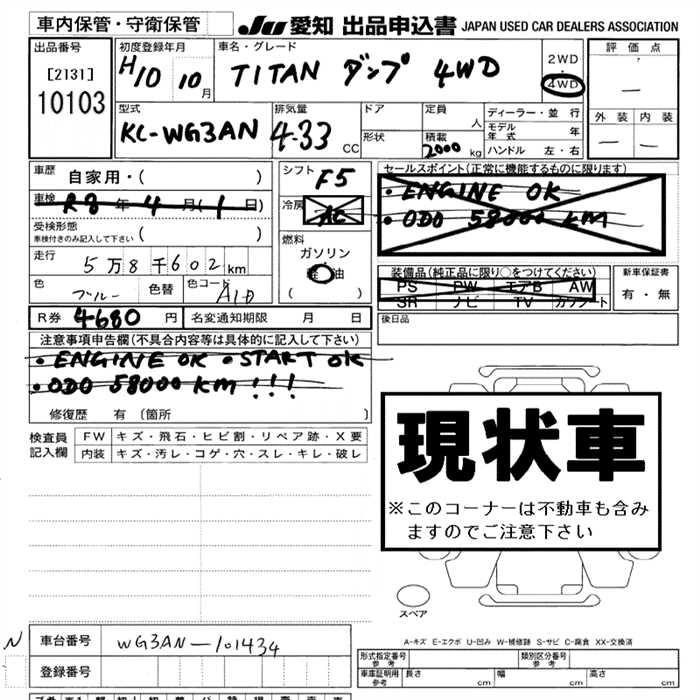 車内保管・守衛保管
JU 愛知 出品申込書 JAPAN USED CAR DEALERS ASSOCIATION
出品番号
[2131]
10103
初度登録年月
H10 10月
車名・グレード
TITAN ダンプ 4WD
2WD
・
4WD
評価点
―
外装 内装
― ―
型式
KC-WG3AN
排気量
4.33 CC
ドア
形状
定員
人
積載
2000 kg
ディーラー・並行
モデル年式 年
ハンドル 左・右
車歴
自家用・( )
車検
R8年4月(1日)
受検形態
車検付きのみ記入して下さい ( )
走行
5万8千602km
色
ブルー
色替
色コード
A1D
シフト
F5
冷房
AC
燃料
ガソリン
軽油
( )
セールスポイント(正常に機能するものに限ります)
・ENGINE OK
・ODO 58000 KM
装備品(純正品に限り○をつけてください)
PS PW エアB AW
SR ナビ TV カワシート
新車保証書
有・無
R券 4680 円
名変通知期限 月 日
後日品
注意事項申告欄(不具合内容等は具体的に記入して下さい)
・ENGINE OK ・START OK
・ODO 58000 KM !!!
修復歴 有 〔箇所 〕
検査員記入欄
FW キズ・飛石・ヒビ割・リペア跡・X要
内装 キズ・汚レ・コゲ・穴・スレ・キレ・破レ
現状車
※このコーナーは不動車も含み
ますのでご注意下さい
スペア
A-キズ E-エクボ U-凹み W-補修跡 S-サビ C-腐食 XX-交換済
N
車台番号
WG3AN-101434
登録番号
形式指定番号
参考
類別区分番号
参考
車庫証明用
参考
長さ cm
幅 cm
高さ cm